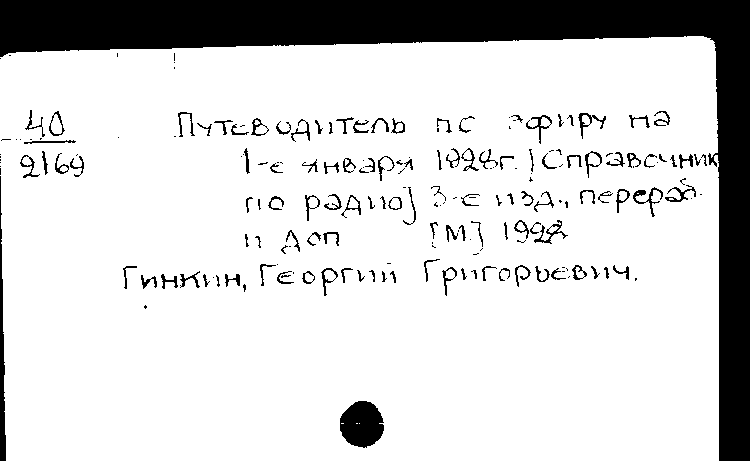 40 Путеводитель по эфиру на
2169 1-е января 1928г. [Справочник
по радио] 3-е изд., перераб.
и доп [М] 1928
Гинкин, Георгий Григорьевич.